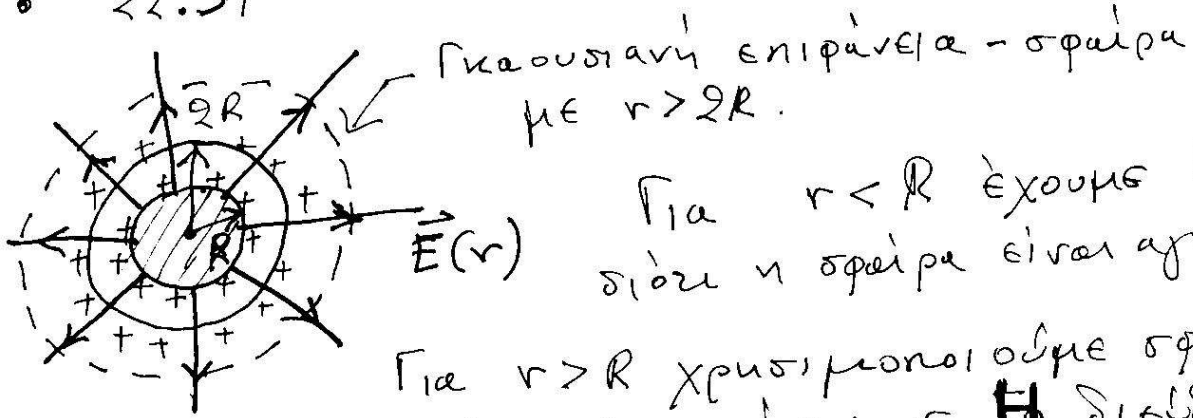 22.51
Γκαουσιανή επιφάνεια - σφαίρα
με r > 2R.
2R
R
E⃗(r)
Για r < R έχουμε
διότι η σφαίρα είναι αγ
Για r > R χρησιμοποιούμε σφ
Η διεύθ